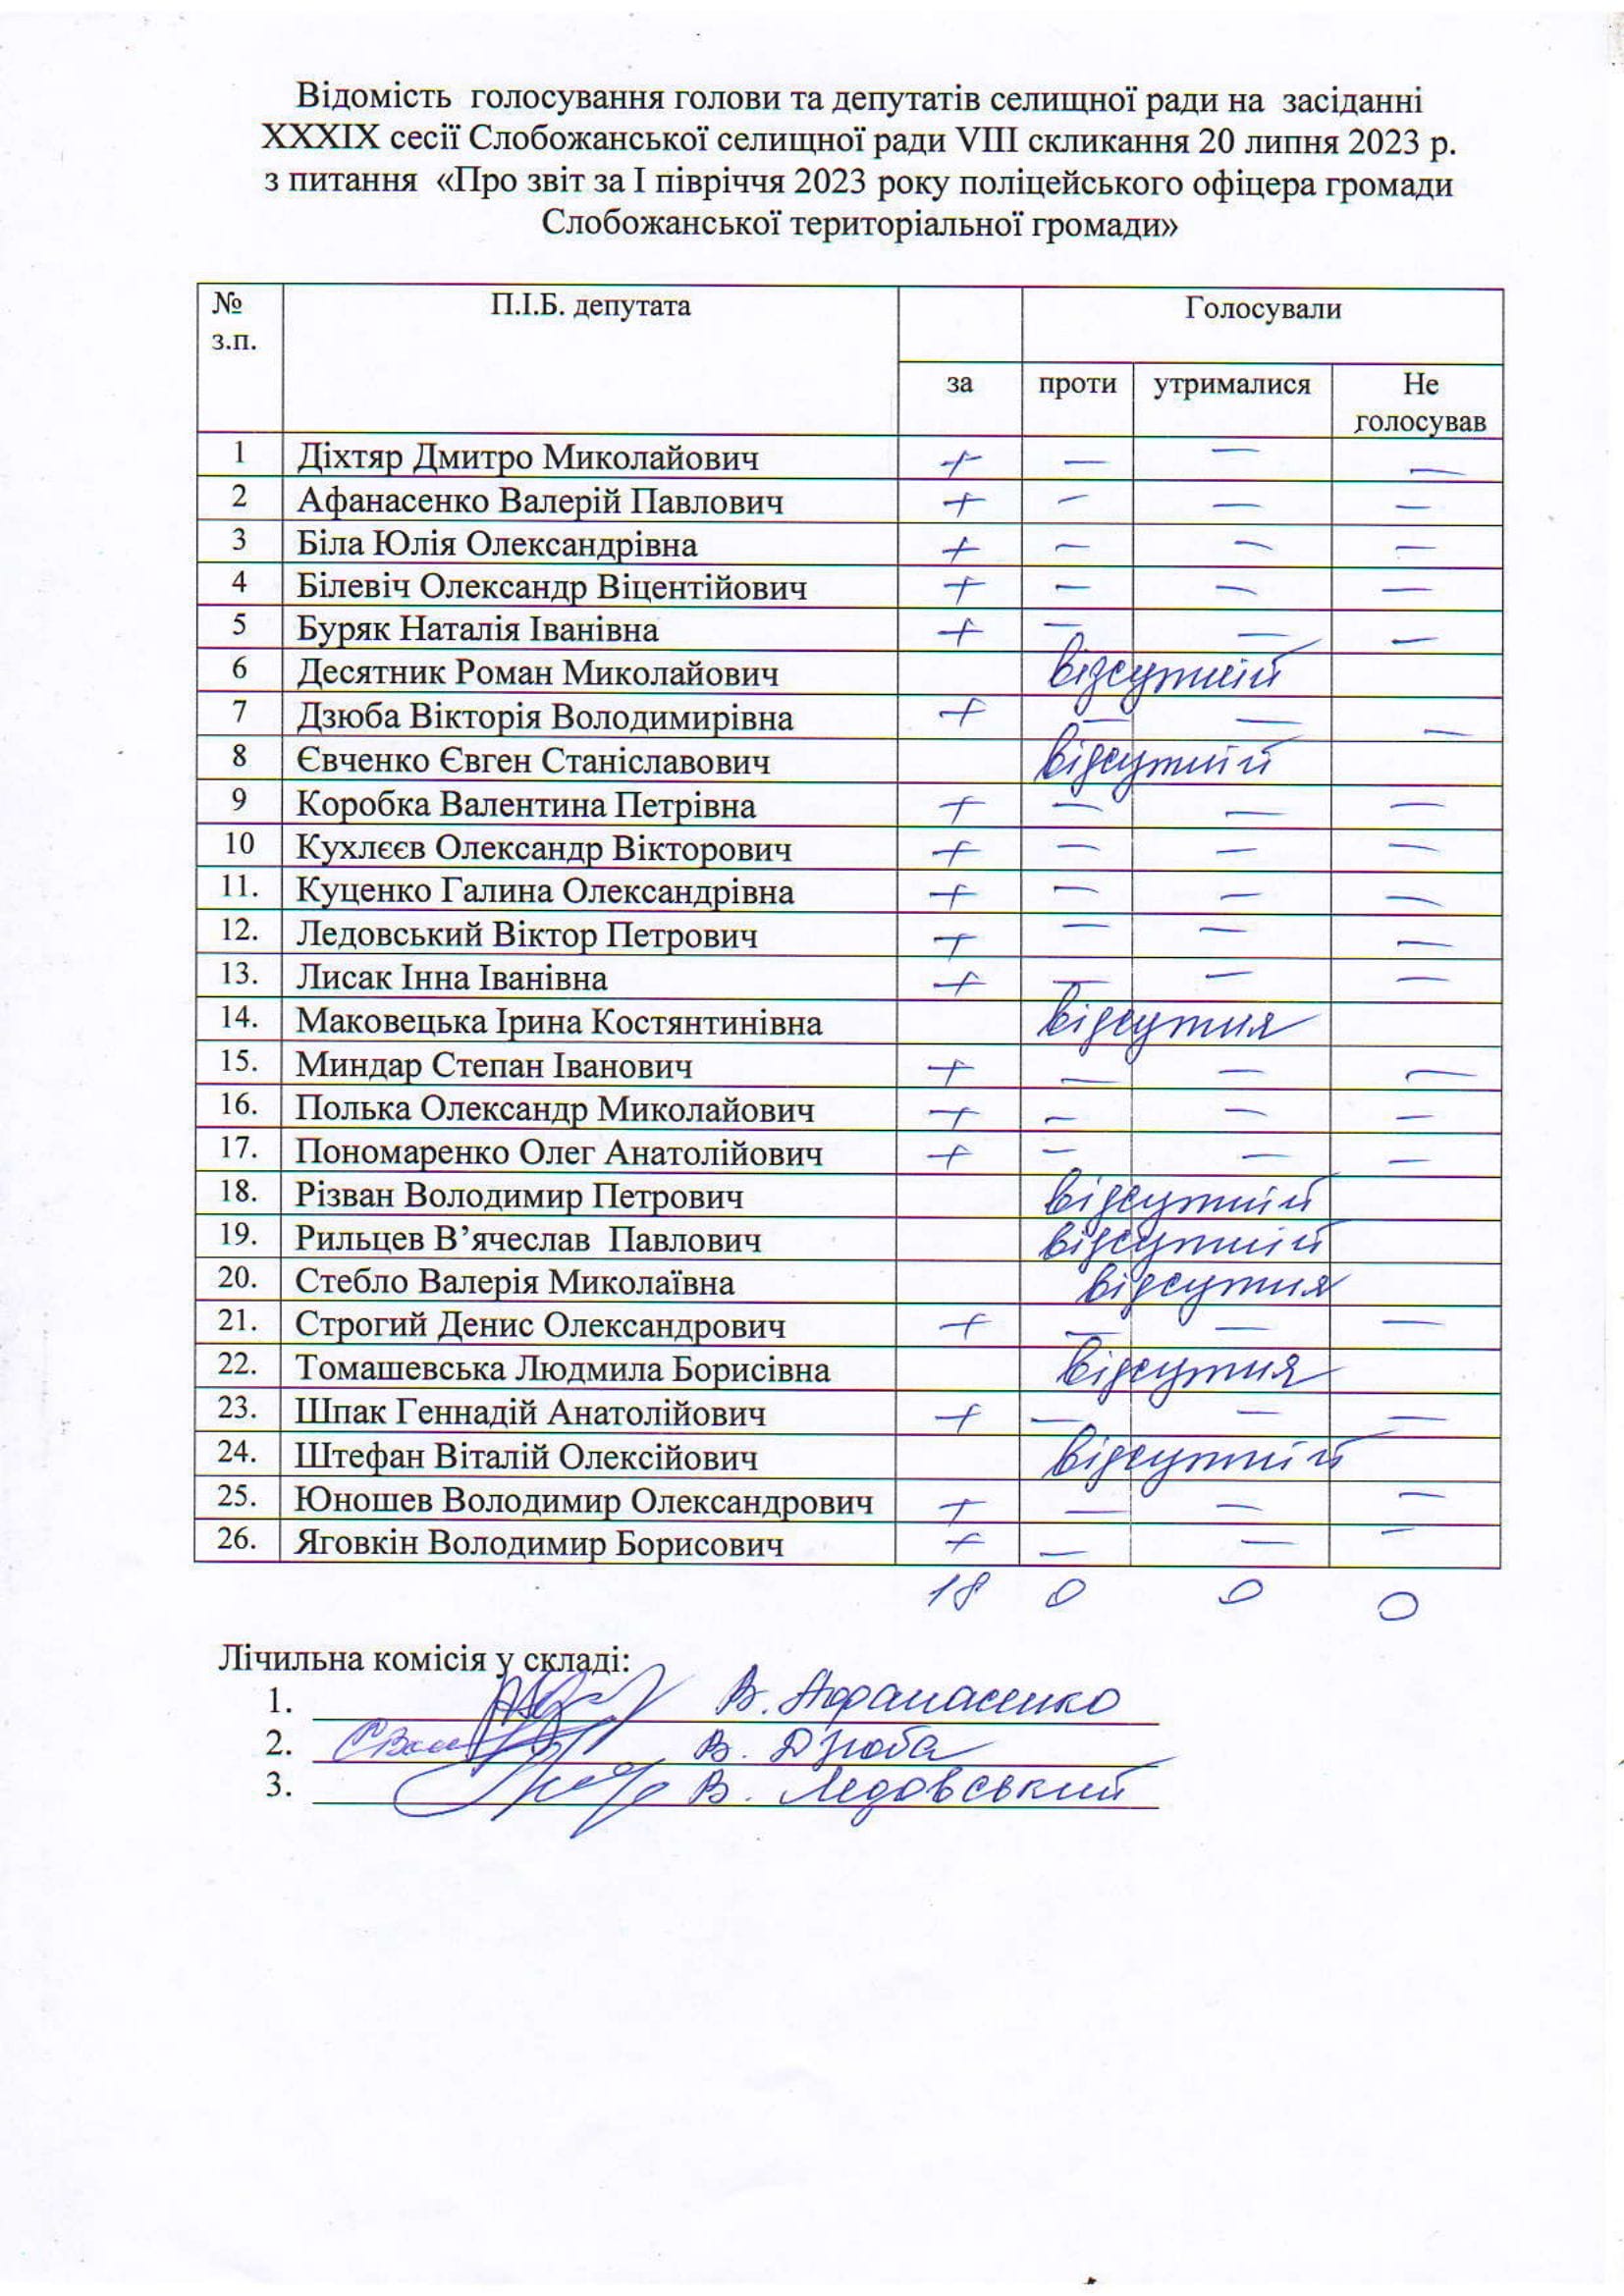 Відомість голосування голови та депутатів селищної ради на засіданні
XXXIX сесії Слобожанської селищної ради VIII скликання 20 липня 2023 р.
з питання «Про звіт за І півріччя 2023 року поліцейського офіцера громади
Слобожанської територіальної громади»
№ з.п. П.І.Б. депутата Голосували
за проти утрималися Не голосував
1 Діхтяр Дмитро Миколайович + — — —
2 Афанасенко Валерій Павлович + — — —
3 Біла Юлія Олександрівна + — — —
4 Білевіч Олександр Віцентійович + — — —
5 Буряк Наталія Іванівна + — — —
6 Десятник Роман Миколайович відсутній
7 Дзюба Вікторія Володимирівна + — — —
8 Євченко Євген Станіславович відсутній
9 Коробка Валентина Петрівна + — — —
10 Кухлєєв Олександр Вікторович + — — —
11. Куценко Галина Олександрівна + — — —
12. Ледовський Віктор Петрович + — — —
13. Лисак Інна Іванівна + — — —
14. Маковецька Ірина Костянтинівна відсутня
15. Миндар Степан Іванович + — — —
16. Полька Олександр Миколайович + — — —
17. Пономаренко Олег Анатолійович + — — —
18. Різван Володимир Петрович відсутній
19. Рильцев В’ячеслав Павлович відсутній
20. Стебло Валерія Миколаївна відсутня
21. Строгий Денис Олександрович + — — —
22. Томашевська Людмила Борисівна відсутня
23. Шпак Геннадій Анатолійович + — — —
24. Штефан Віталій Олексійович відсутній
25. Юношев Володимир Олександрович + — — —
26. Яговкін Володимир Борисович + — — —
18 0 0 0
Лічильна комісія у складі:
1. В. Афанасенко
2. В. Дзюба
3. В. Ледовський